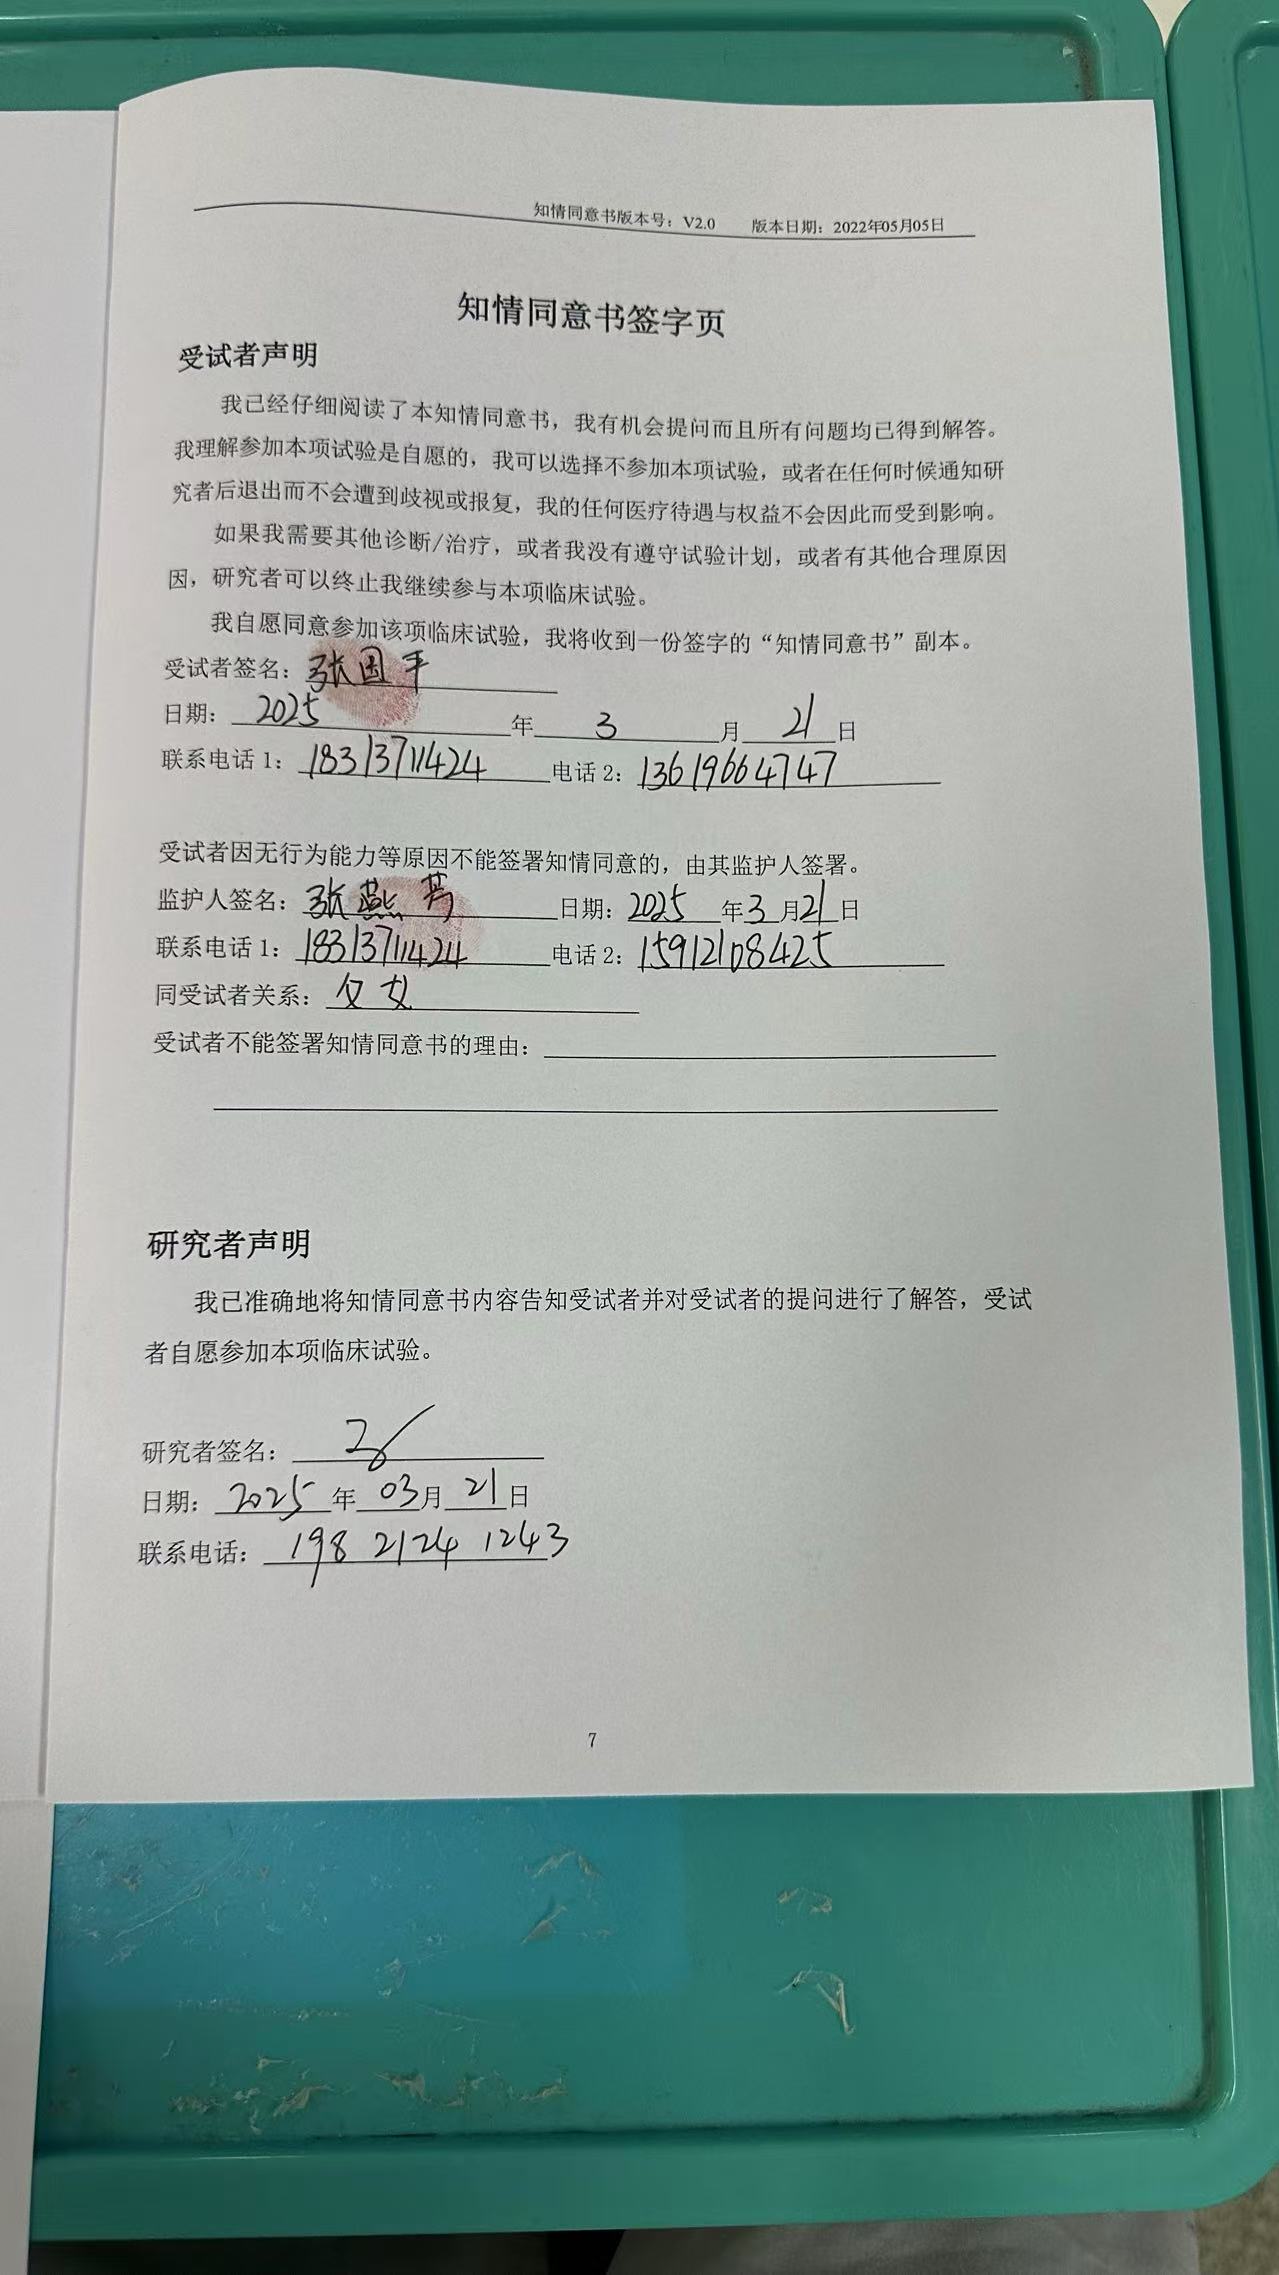 知情同意书版本号：V2.0 版本日期：2022年05月05日
知情同意书签字页
受试者声明
我已经仔细阅读了本知情同意书，我有机会提问而且所有问题均已得到解答。
我理解参加本项试验是自愿的，我可以选择不参加本项试验，或者在任何时候通知研
究者后退出而不会遭到歧视或报复，我的任何医疗待遇与权益不会因此而受到影响。
如果我需要其他诊断/治疗，或者我没有遵守试验计划，或者有其他合理原因
因，研究者可以终止我继续参与本项临床试验。
我自愿同意参加该项临床试验，我将收到一份签字的“知情同意书”副本。
受试者签名：张国平
日期：2025年3月21日
联系电话1：18313711424 电话2：13619664747
受试者因无行为能力等原因不能签署知情同意的，由其监护人签署。
监护人签名：张燕芳 日期：2025年3月21日
联系电话1：18313711424 电话2：15912108425
同受试者关系：父女
受试者不能签署知情同意书的理由：
研究者声明
我已准确地将知情同意书内容告知受试者并对受试者的提问进行了解答，受试
者自愿参加本项临床试验。
研究者签名：
日期：2025年03月21日
联系电话：198 2124 1243
7